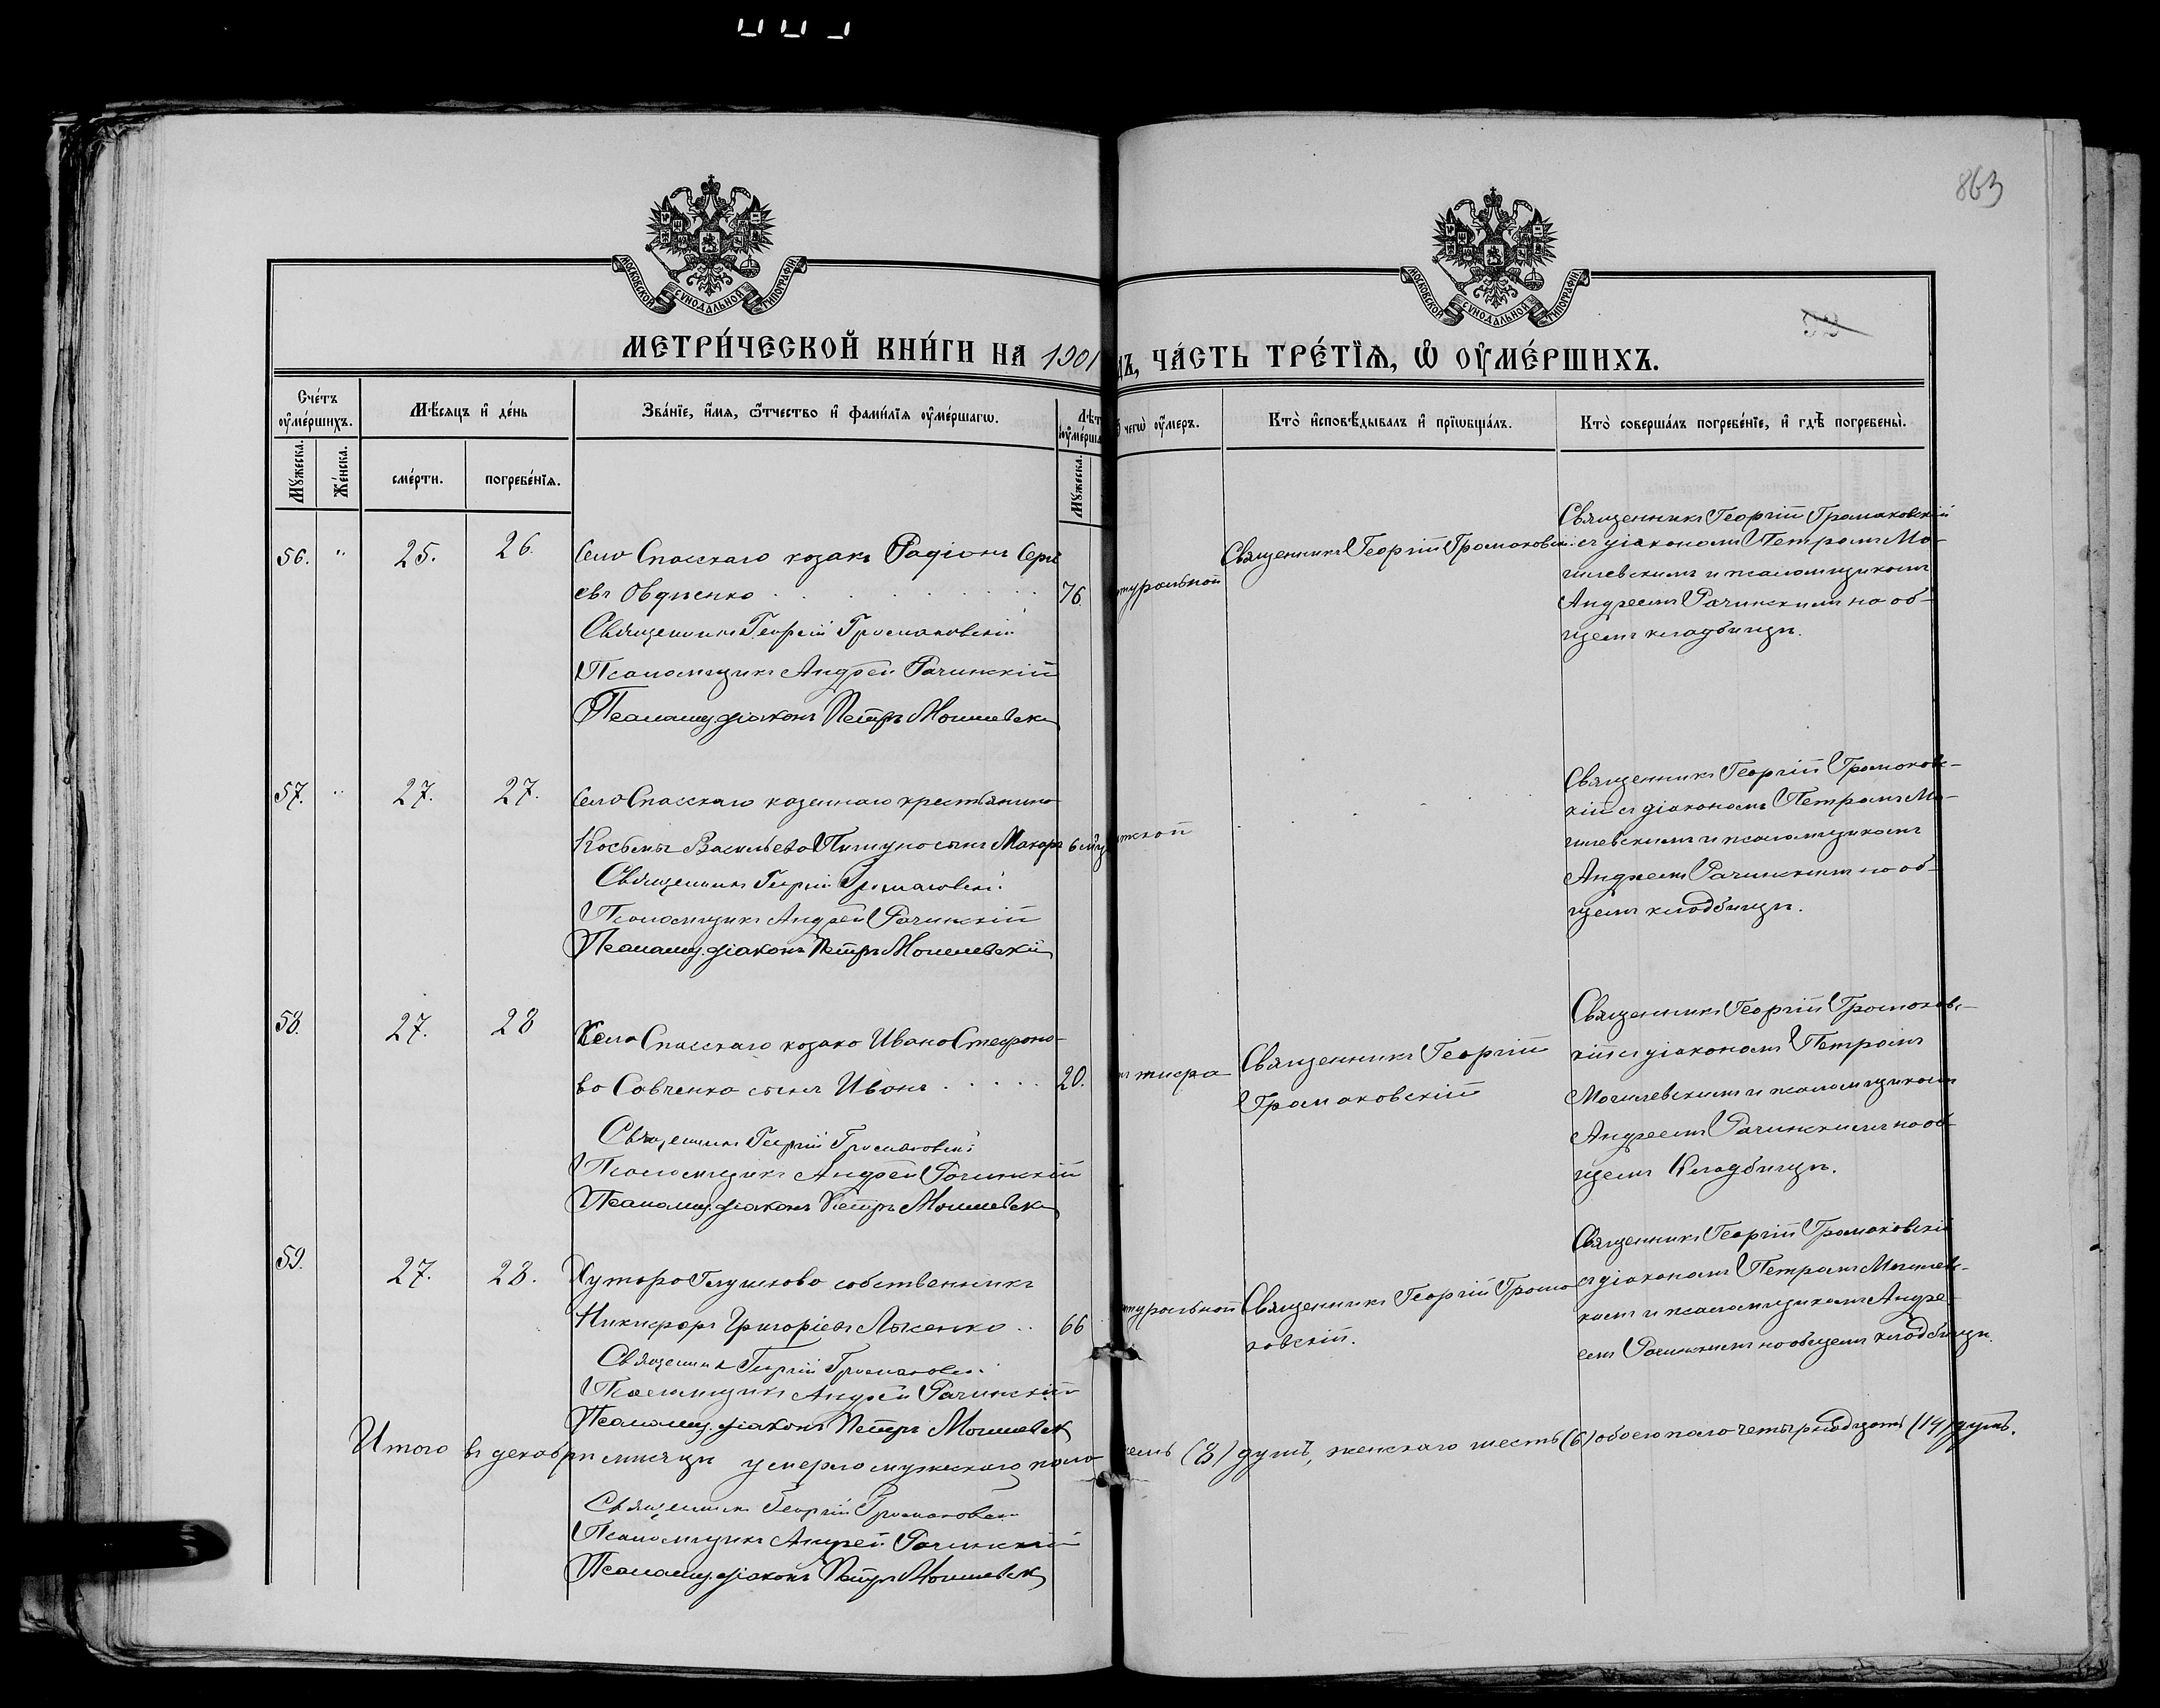 863
МОСКОВСКОЙ СѴНОДАЛЬНОЙ ТИПОГРАФІИ
МОСКОВСКОЙ СѴНОДАЛЬНОЙ ТИПОГРАФІИ
МЕТРИ́ЧЕСКОЙ КНИ́ГИ НА 1901
ДЪ, ЧА́СТЬ ТРЕ́ТЇѦ, Ѡ҆ ОУ҆МЕ́РШИХЪ.
Сче́тъ оу҆ме́ршихъ.
Мѣ́сѧцъ и҆ де́нь
Зва́нїе, и҆́мѧ, ѻ҆́тчество и҆ фами́лїѧ оу҆ме́ршагѡ.
Лѣт
оу҆ме́рша
чегѡ̀ оу҆́меръ.
Кто̀ и҆сповѣ́дывалъ и҆ прїѡбща́лъ.
Кто̀ соверша́лъ погребе́нїе, и҆ гдѣ̀ погребены̀.
Мꙋ́жеска.
Же́нска.
сме́рти.
погребе́нїѧ.
Мꙋ́жеска.
56. " 25. 26.
Село Спасскаго козакъ Радіонъ Серге
евъ Овдіенко 76.
Священникъ Георгій Громаковскій
Псаломщикъ Андрей Рачинскій
Псаломщ. діаконъ Петръ Могилевск
туральной
Священникъ Георгій Громаковскі
Священникъ Георгій Громаковскій
съ діакономъ Петромъ Мо-
гилевскимъ и псаломщикомъ
Андреемъ Рачинскимъ на об-
щемъ кладбищѣ.
57. " 27. 27.
Села Спасскаго казеннаго крестьянина
Косьмы Васильева сынъ Макаръ 6
Священникъ Георгій Громаковскі
Псаломщикъ Андрей Рачинскій
Псаломщ. діаконъ Петръ Могилевскій
Священникъ Георгій Громаков-
скій съ діакономъ Петромъ Мо-
гилевскимъ и псаломщикомъ
Андреемъ Рачинскимъ на об-
щемъ кладбищѣ.
58. 27. 28
Села Спасскаго козака Ивана Стефано-
ва Савченка сынъ Иванъ 20.
Священникъ Георгій Громаковскі
Псаломщикъ Андрей Рачинскій
Псаломщ. діаконъ Петръ Могилевск
тифа
Священникъ Георгій
Громаковскій
Священникъ Георгій Громаковс-
кій съ діакономъ Петромъ
Могилевскимъ и псаломщикомъ
Андреемъ Рачинскимъ на об-
щемъ кладбищѣ.
59. 27. 28.
Хутора Глушкова собственникъ
Никифоръ Григоріевъ Лысенко 66
Священникъ Георгій Громаковскі
Псаломщикъ Андрей Рачинскій
Псаломщ. діаконъ Петръ Могилевск
туральной
Священникъ Георгій Грома
ковскій.
Священникъ Георгій Громаковскій
съ діакономъ Петромъ Могилев-
скимъ и псаломщикомъ Андре-
емъ Рачинскимъ на общемъ кладбищѣ.
Итого въ декабрѣ мѣсяцѣ умерло мужескаго пола
семь (8) душъ, женскаго шесть (6) обоего пола четырнадцать (14) душъ.
Священникъ Георгій Громаковскі
Псаломщикъ Андрей Рачинскій
Псаломщ. діаконъ Петръ Могилевск